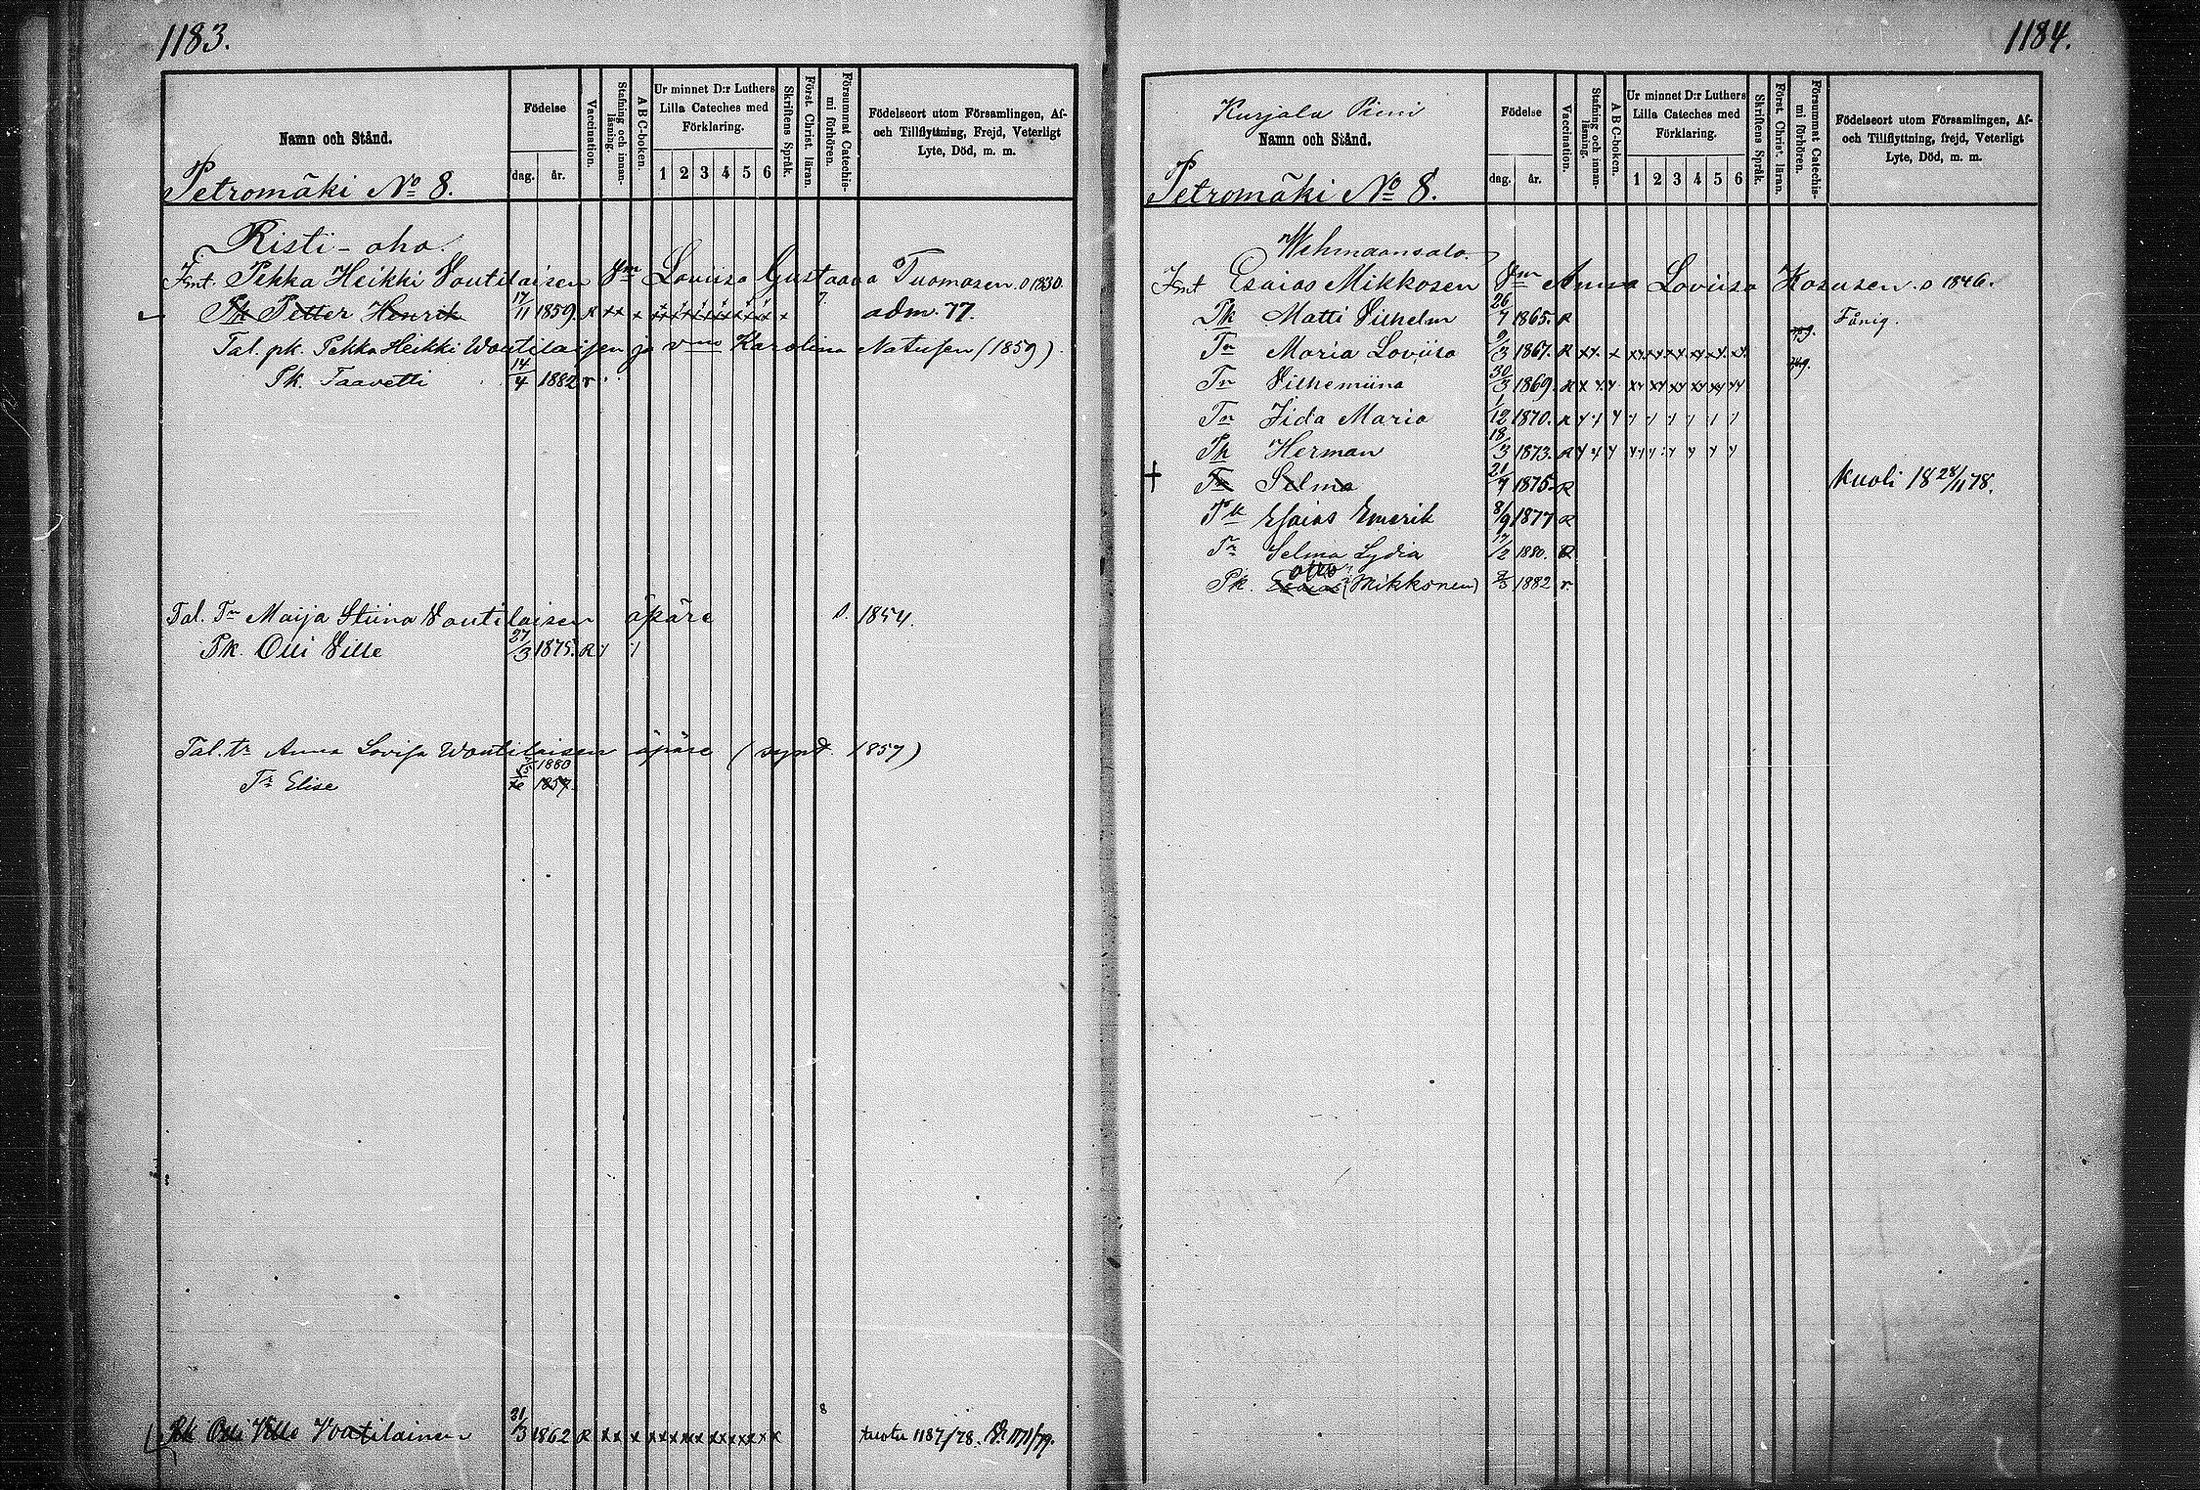 1183.
Namn och Stånd.
Födelse
dag. år.
Vaccination.
Stafning och innanläsning.
ABC-boken.
Ur minnet D:r Luthers Lilla Cateches med Förklaring.
1 2 3 4 5 6
Skriftens Språk.
Först. Christ. läran.
Försummat Catechismi förhören.
Födelseort utom Församlingen, Af- och Tillflyttning, Frejd, Veterligt Lyte, Död, m. m.
Petromäki No 8.
Risti-aho.
Imt. Pekka Heikki Voutilaisen Vm Loviisa Gustaava Tuomosen o 1830.
Pk Petter Henrik 17/11 1859. R xx x 7. adm. 77.
Tal. pk. Pekka Heikki Woutilaisen ja vmo Karolina Natusen (1859)
Pk. Taavetti 14/4 1882 r
Tal. Tr Maija Stiina Voutilaisen äpäre o. 1854.
Pk. Olli Ville 27/3 1875. R
Tal. tr Anna Lovisa Woutilaisen äpäre (synt. 1857)
1880
Tr Elise 1857.
Pk Olli Ville Voutilainen 31/3 1862 R xx x 8 1187/78.
1184.
Kurjala Pieni
Namn och Stånd.
Födelse
dag. år.
Vaccination.
Stafning och innanläsning.
ABC-boken.
Ur minnet D:r Luthers Lilla Cateches med Förklaring.
1 2 3 4 5 6
Skriftens Språk.
Först. Christ. läran.
Försummat Catechismi förhören.
Födelseort utom Församlingen, Af- och Tillflyttning, frejd, Veterligt Lyte, Död, m. m.
Petromäki No 8.
Wehmaansalo.
Imt Esaias Mikkosen Vm Anna Loviisa Kososen o 1846.
Pk Matti Vilhelm 26/7 1865. R Fånig.
Tr Maria Loviisa 9/3 1867. R xx. x
Tr Vilhemiina 30/3 1869. R
Tr Iida Maria 1/12 1870. R
Pk Herman 18/3 1873. R
Tr Selma 21/7 1875. R kuoli 18 28/11 78.
Pk Esaias Emerik 8/9 1877 R
Tr Selma Lydia 17/2 1880. R
Otto
Pk. Esaias (Mikkonen) 1882 r.